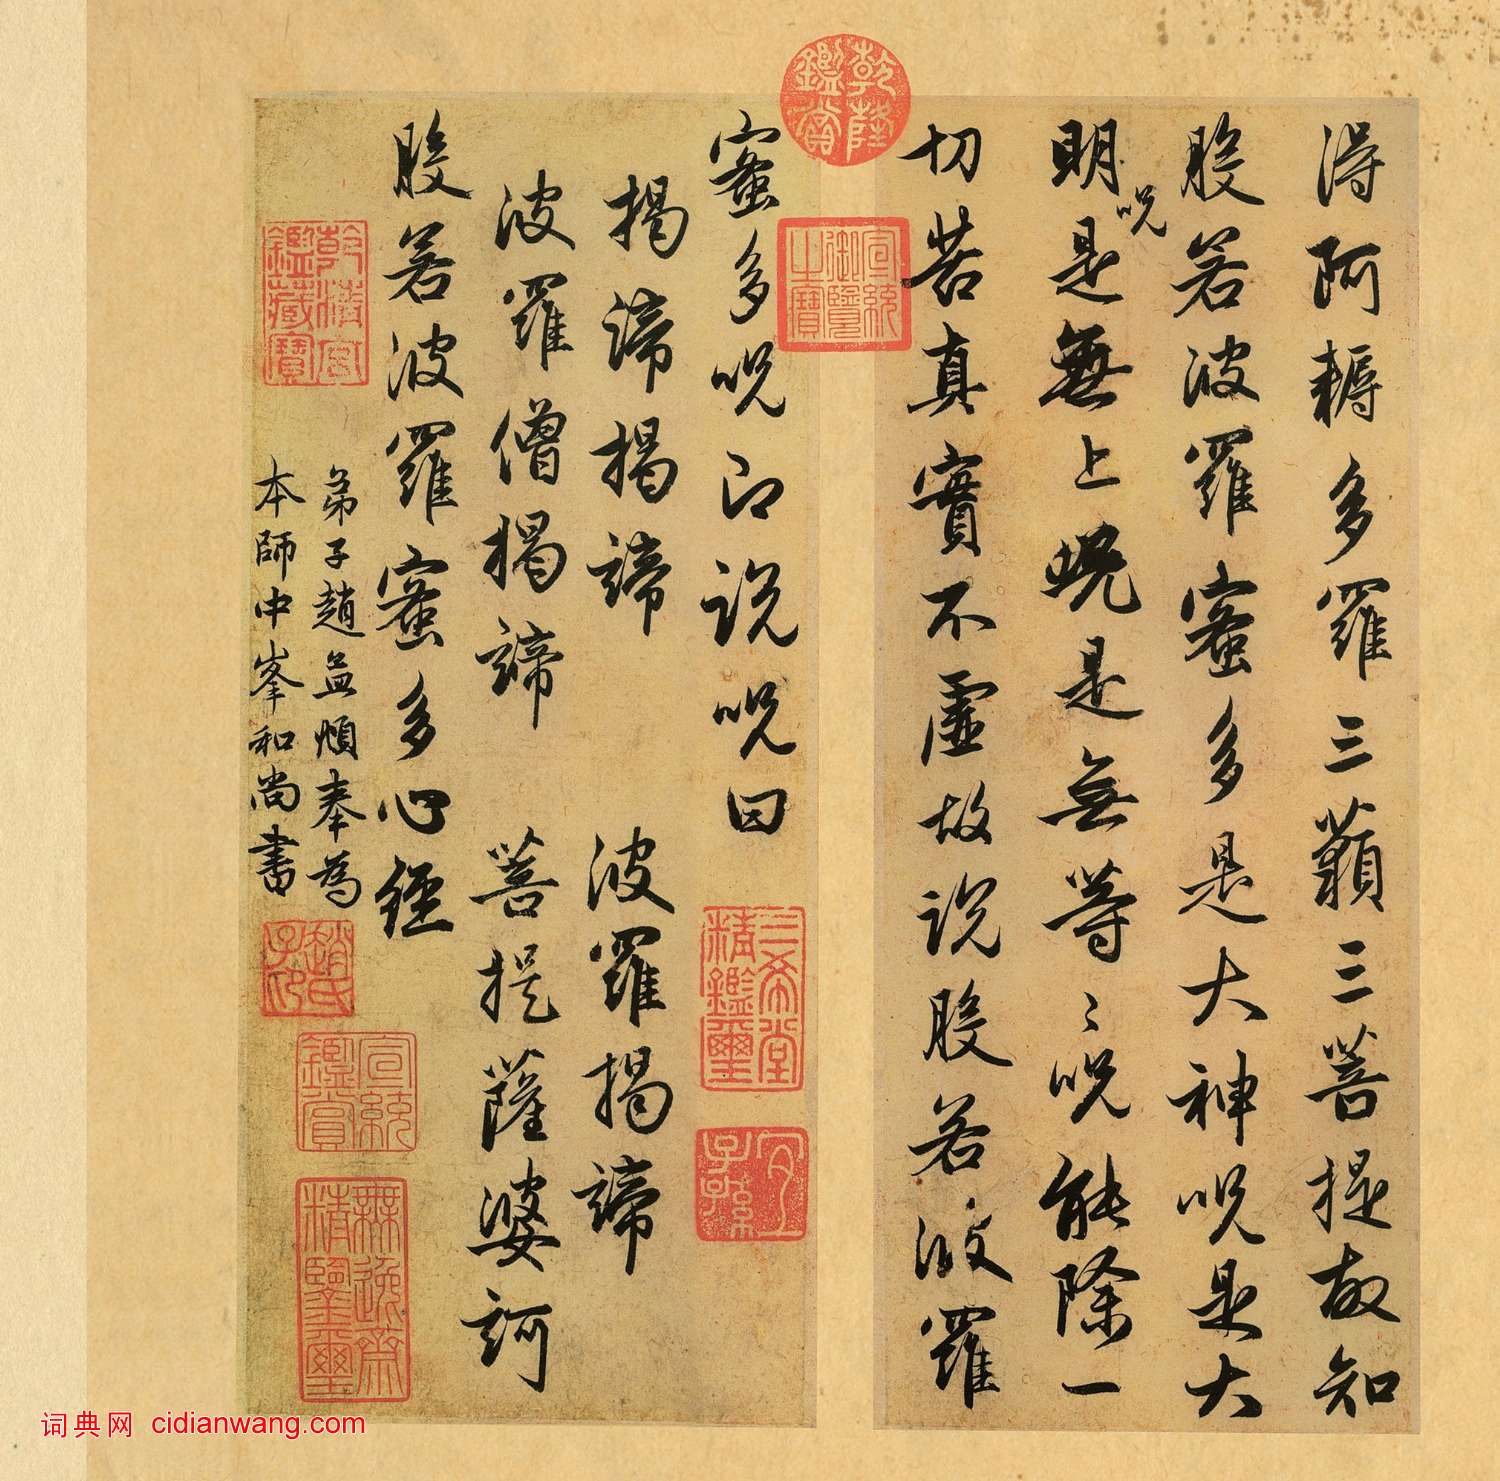 得阿耨多羅三藐三菩提故知
般若波羅蜜多是大神呪是大
明呪是無上呪是無等〻呪能除一
切苦真實不虛故説般若波羅
蜜多呪即説呪曰
揭諦揭諦 波羅揭諦
波羅僧揭諦 菩提薩婆訶
般若波羅蜜多心經
弟子趙孟頫奉為
本師中峯和尚書
乾隆鑑賞
宣統御覽之寶
三希堂精鑑璽
宜子孫
乾清宮鑑藏寶
趙氏子印
宣統鑑賞
無逸齋精鑒璽
词典网 cidianwang.com